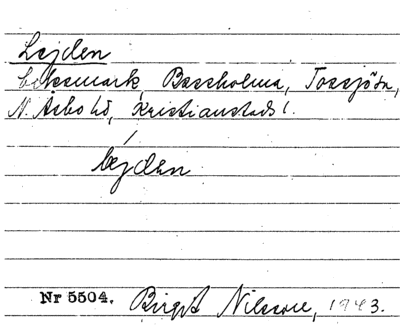 Lejden
betesmark, Bassholma, Tossjösn,
N. Åsbo hd, Kristianstads l.
lejden
Nr 5504. Birgit Nilsson, 1943.